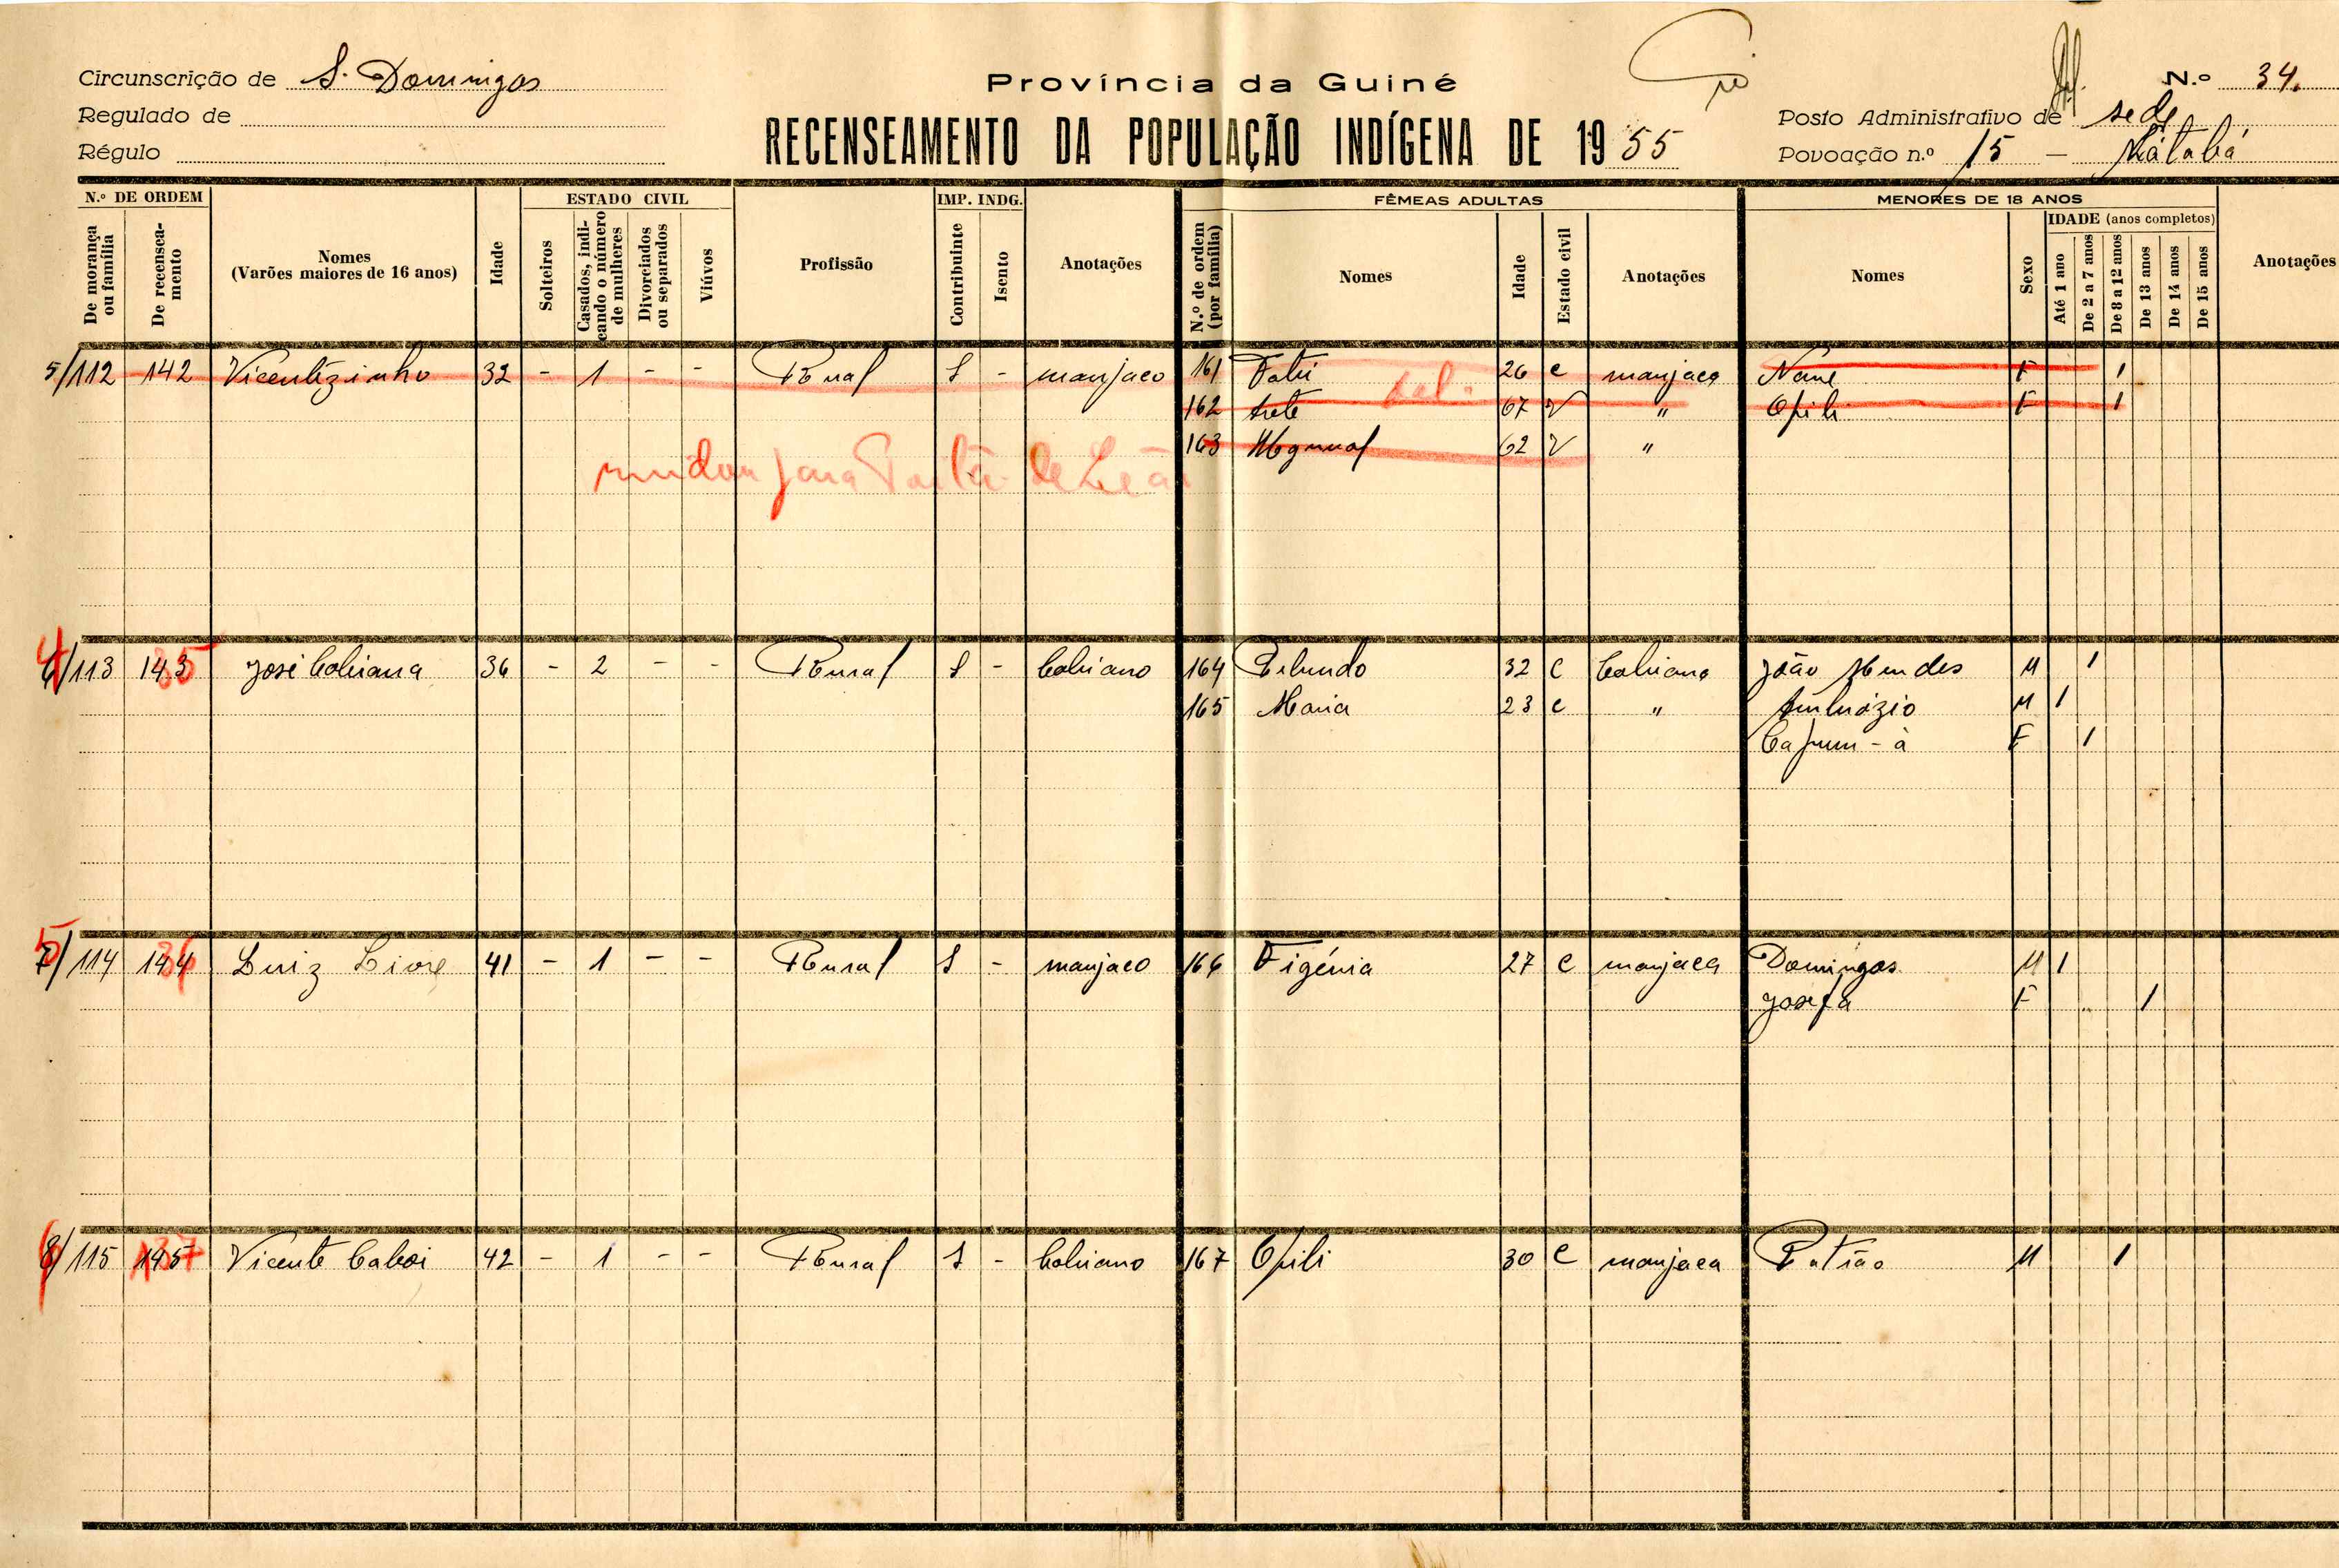 Circunscrição de S. Domingos
Regulado de
Régulo
Província da Guiné
RECENSEAMENTO DA POPULAÇÃO INDÍGENA DE 1955
N.º 34.
Posto Administrativo de sede
Povoação n.º 15 -
N.º DE ORDEM
De morança ou família
De recenseamento
Nomes
(Varões maiores de 16 anos)
Idade
ESTADO CIVIL
Solteiros
Casados, indicando o número de mulheres
Divorciados ou separados
Viúvos
Profissão
IMP. INDG.
Contribuinte
Isento
Anotações
FÊMEAS ADULTAS
N.º de ordem (por família)
Nomes
Idade
Estado civil
Anotações
MENORES DE 18 ANOS
Nomes
Sexo
IDADE (anos completos)
Até 1 ano
De 2 a 7 anos
De 8 a 12 anos
De 13 anos
De 14 anos
De 15 anos
Anotações
5/112 142 Vicentezinho 32 - 1 - - Rural S - manjaco 161 26 c manjaca F 1
162 67 V " Opili F 1
163 62 V "
mudou para de Leão
/113 143 José Cobiana 36 - 2 - - Rural S - Cobiano 164 32 C Cobiana João Mendes M 1
165 Maria 23 c " Ambrózio M 1
F 1
/114 144 Luiz 41 - 1 - - Rural S - manjaco 166 Figénia 27 c manjaca Domingos M 1
Josefa F 1
/115 145 Vicente Caboi 42 - 1 - - Rural S - Cobiano 167 Opili 30 C manjaca Patrão M 1